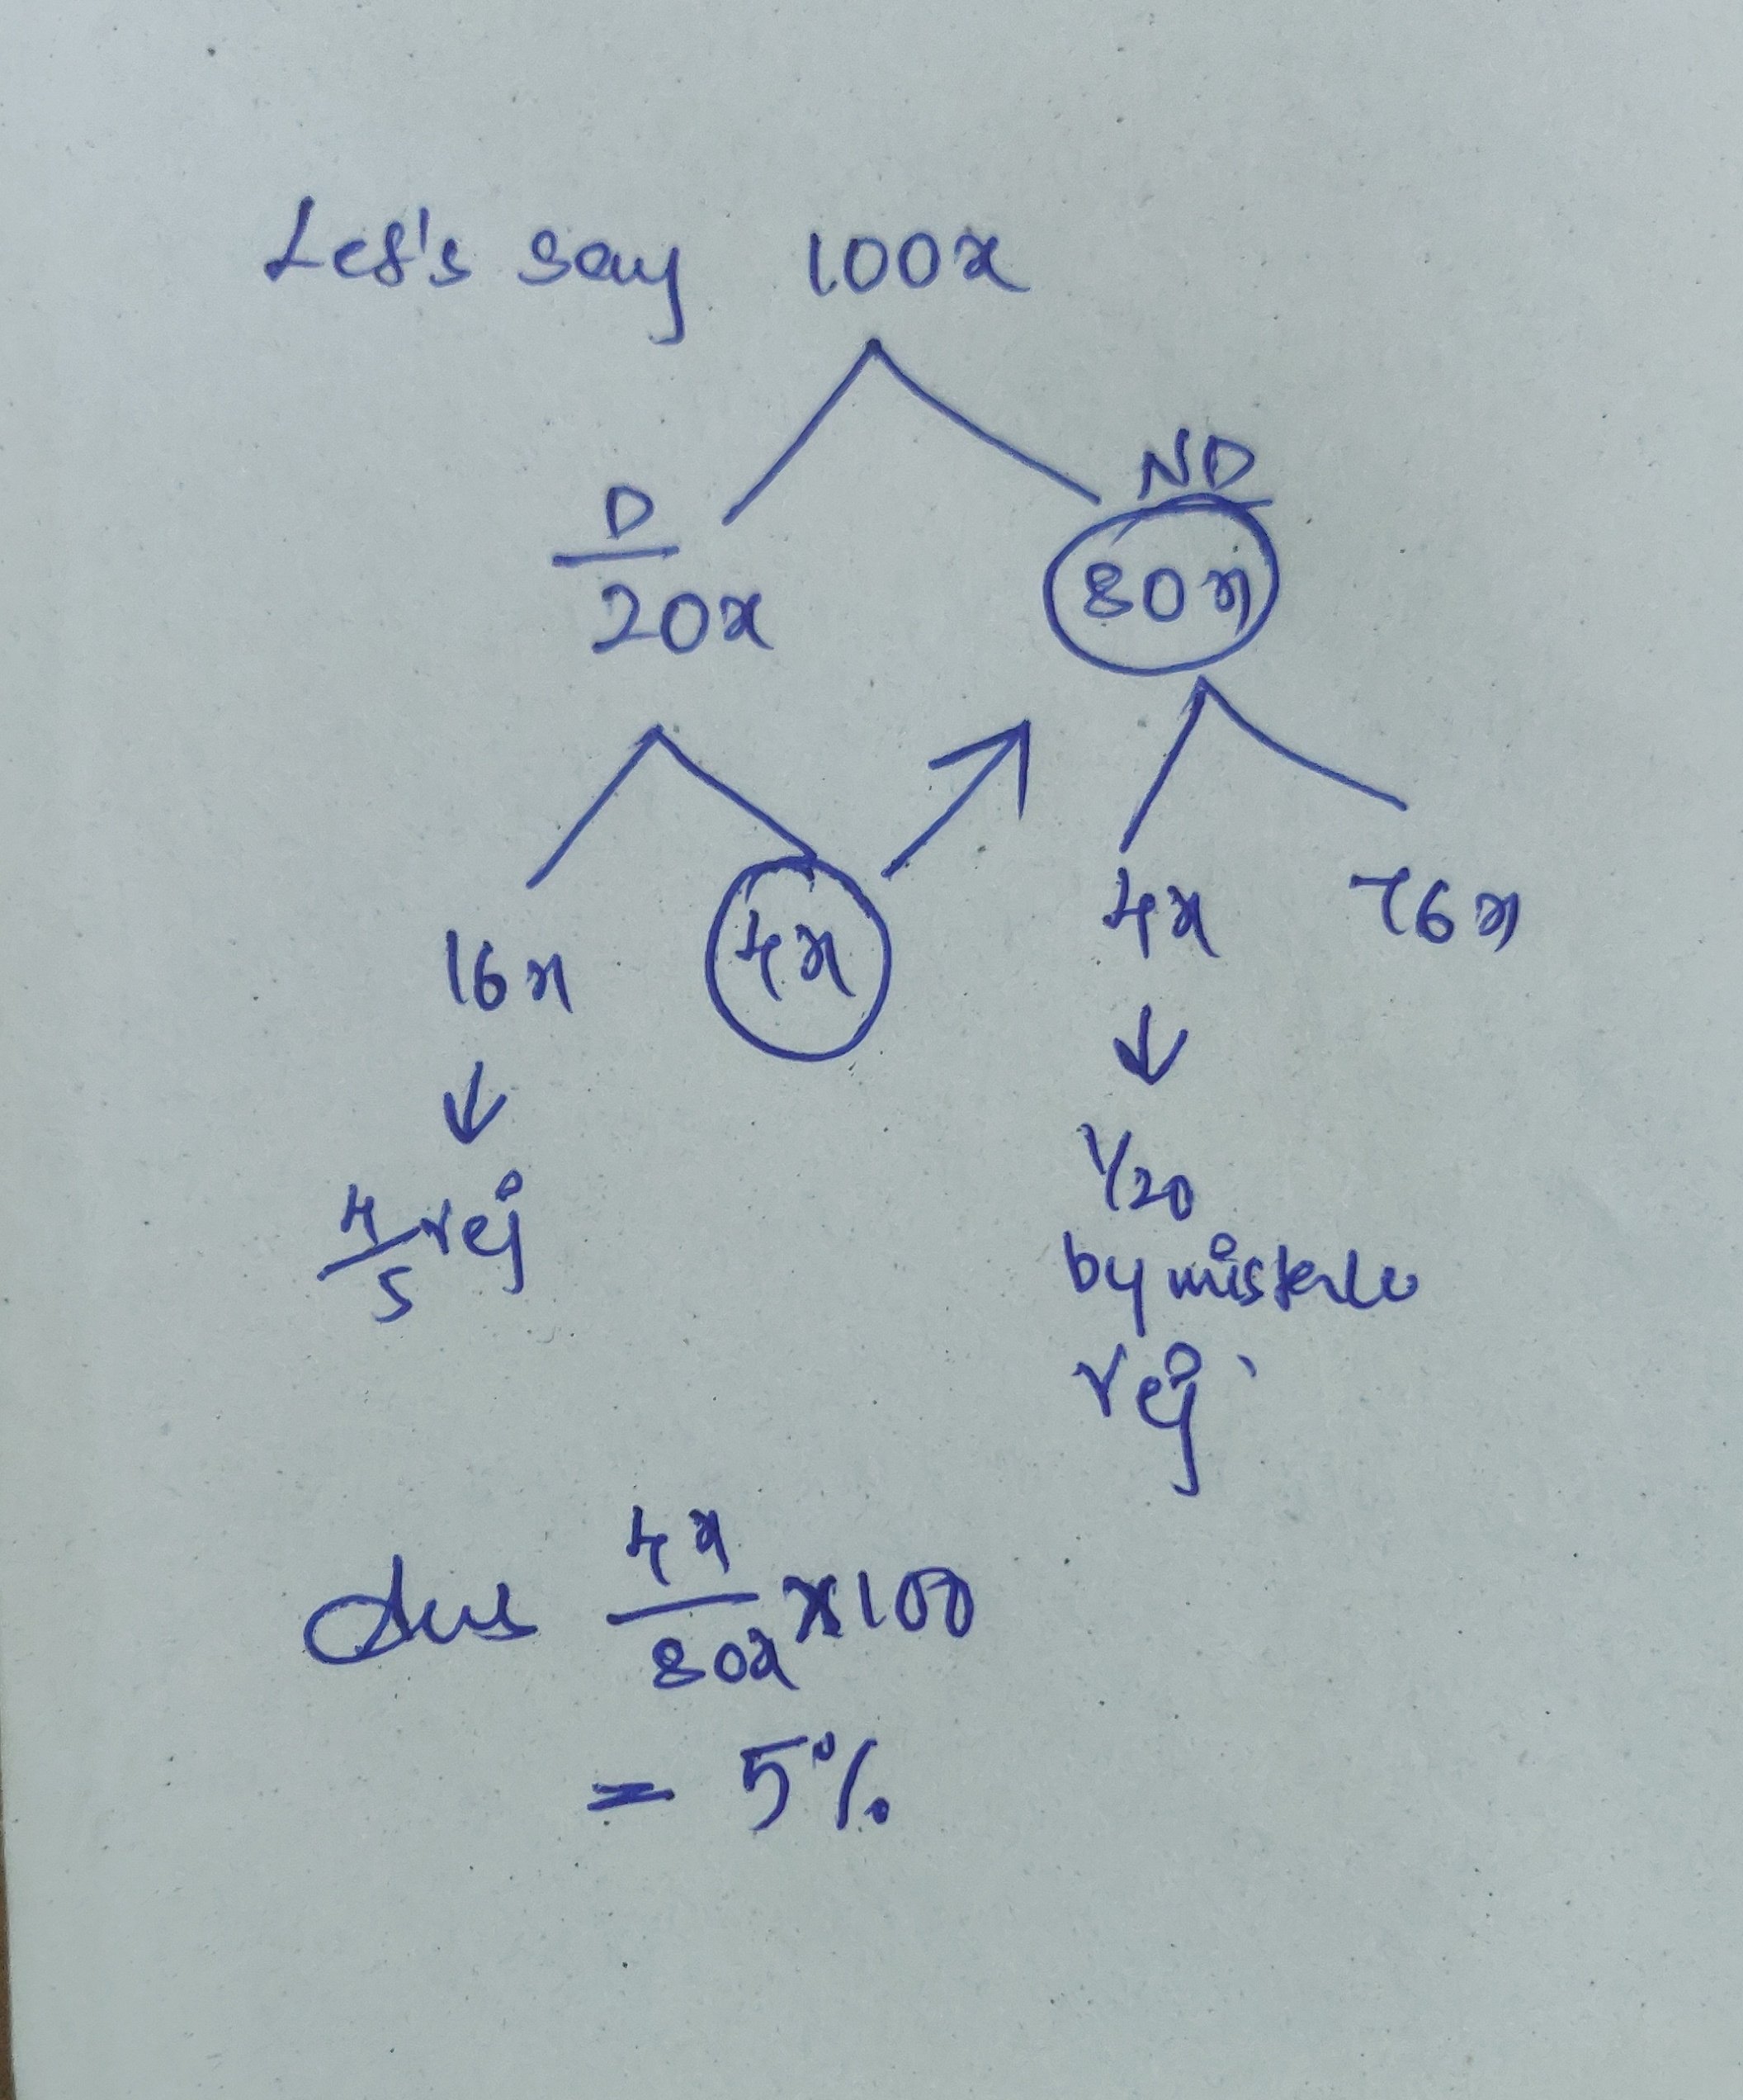 Let's say 100x
D ND
20x 80x
16x 4x 4x 76x
4/5 rej 1/20
by mistake
rej.
Ans 4x/80x × 100
= 5%